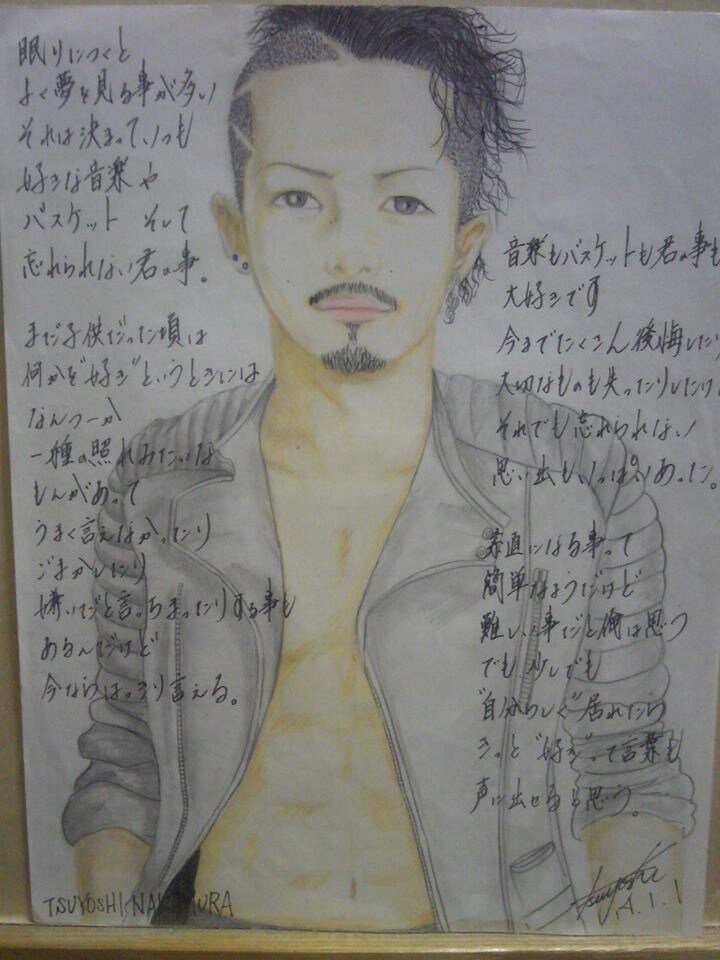 眠りにつくと
よく夢を見る事が多い
それは決まっていつも
好きな音楽や
バスケット そして
忘れられない君の事。
まだ子供だった頃は
何かを"好き"というときには
なんつーか
一種の照れみたいな
もんがあって
うまく言えなかったり
ごまかしたり
嫌いだと言っちまったりする事も
あるんだけど
今ならはっきり言える。
音楽もバスケットも君の事も
大好きです
今までたくさん後悔したり
大切なものも失ったりしたけど
それでも忘れられない
思い出も、いっぱいあった。
素直になる事って
簡単なようだけど
難しい事だと俺は思う
でも少しでも
"自分らしく"居れたら
きっと"好き"って言葉も
声に出せると思う。
TSUYOSHI NAKAMURA
Tsuyoshi
14.1.1